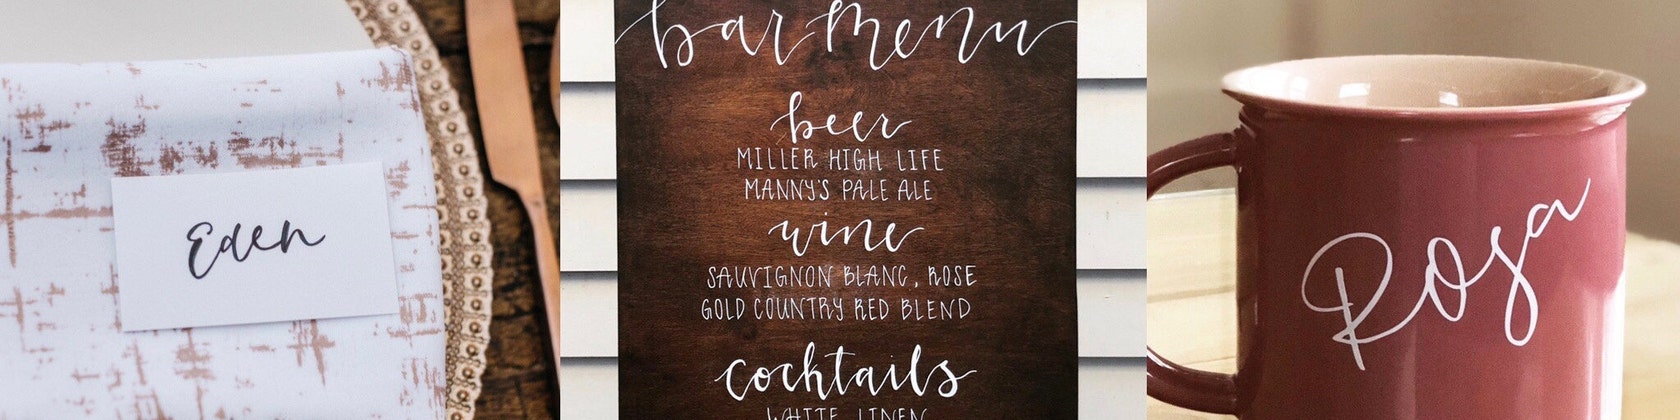 Eden
bar menu
beer
MILLER HIGH LIFE
MANNY'S PALE ALE
wine
SAUVIGNON BLANC, ROSE
GOLD COUNTRY RED BLEND
cocktails
WHITE LINEN
Rosa